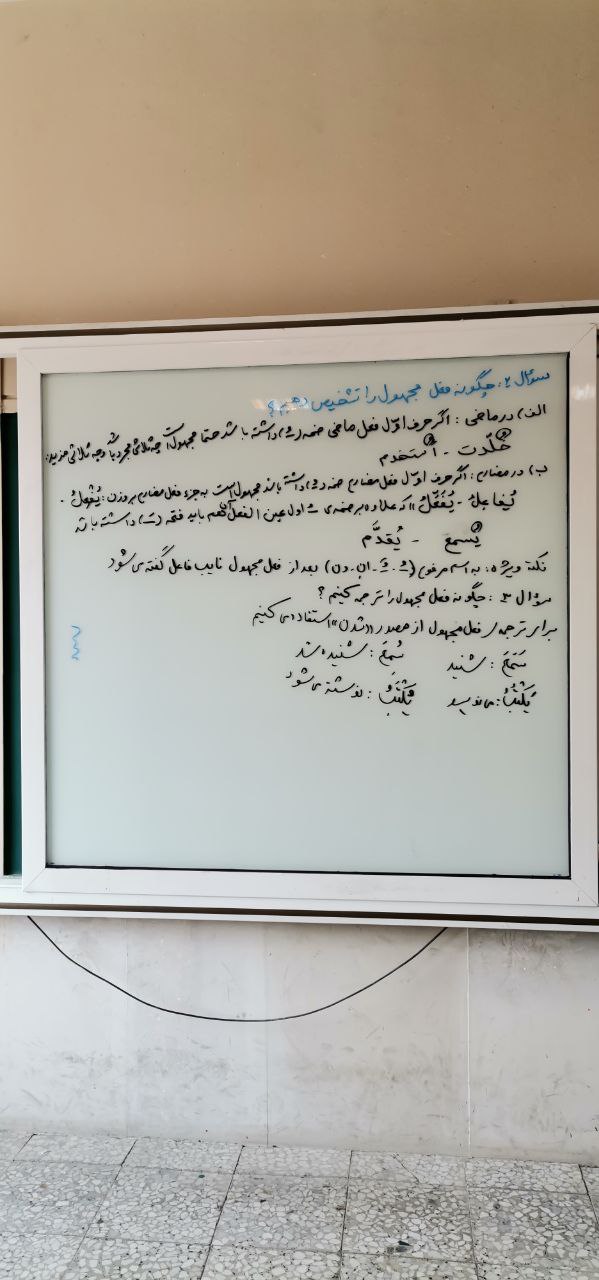 سؤال ۲: چگونه فعل مجهول را تشخیص دهیم؟
الف) در ماضی: اگر حرف اوّل فعل ماضی ضمه (ـُ) داشته باشد حتما مجهول است چه ثلاثی مجرد باشد و چه ثلاثی مزید:
خُلّدت - اُستخدم
ب) در مضارع: اگر حرف اوّل فعل مضارع ضمه (ـُ) داشته باشد مجهول است به جزء فعل مضارع بر وزن: یُفْعِلُ -
یُفاعِلُ - یُفَعِّلُ که علاوه بر ضمه‌ی ـُ اول عین الفعل آن هم باید فتحه (ـَ) داشته باشد
یُسمع - یُقدَّم
نکته ویژه: به اسم مرفوع (ـُ - ـٌ - ان - ون) بعد از فعل مجهول نایب فاعل گفته می شود
سؤال ۳: چگونه فعل مجهول را ترجمه کنیم؟
برای ترجمه‌ی فعل مجهول از مصدر «شدن» استفاده می کنیم
سَمِعَ: شنید سُمِعَ: شنیده شد
یَکْتُبُ: می نویسد یُکْتَبُ: نوشته می شود